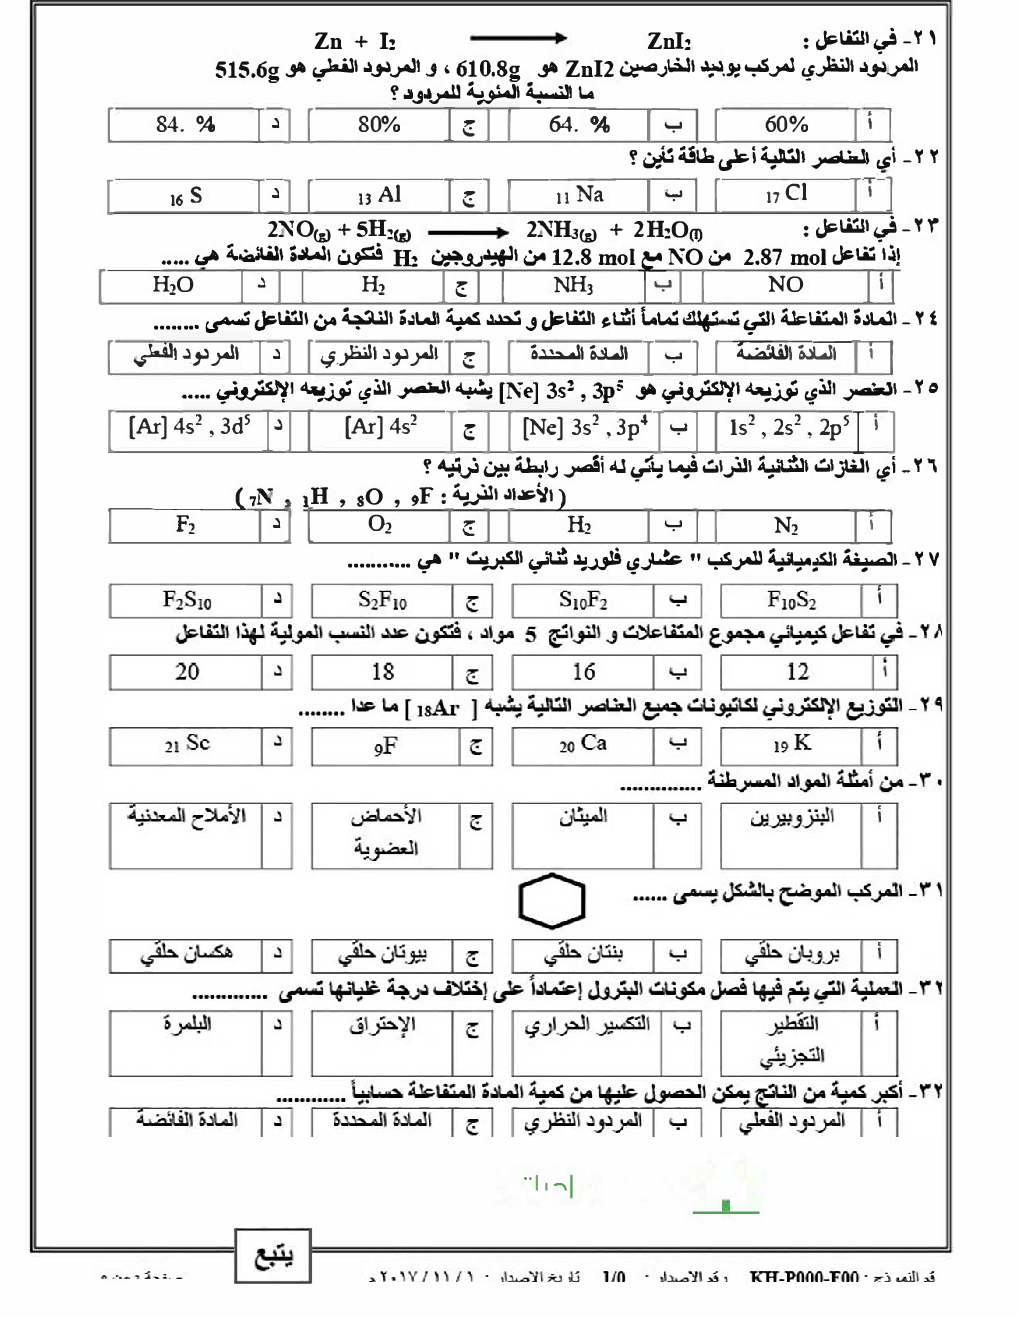 ٢١- في التفاعل : Zn + I2 ⟶ ZnI2
المردود النظري لمركب يوديد الخارصين ZnI2 هو 610.8g ، و المردود الفعلي هو 515.6g
ما النسبة المئوية للمردود ؟
أ 60% ب 64. % ج 80% د 84. %
٢٢- أي العناصر التالية أعلى طاقة تأين ؟
أ 17 Cl ب 11 Na ج 13 Al د 16 S
٢٣- في التفاعل : 2NO(g) + 5H2(g) ⟶ 2NH3(g) + 2H2O(l)
إذا تفاعل 2.87 mol من NO مع 12.8 mol من الهيدروجين H2 فتكون المادة الفائضة هي .....
أ NO ب NH3 ج H2 د H2O
٢٤- المادة المتفاعلة التي تستهلك تماماً أثناء التفاعل و تحدد كمية المادة الناتجة من التفاعل تسمى ........
أ المادة الفائضة ب المادة المحددة ج المردود النظري د المردود الفعلي
٢٥- العنصر الذي توزيعه الإلكتروني هو [Ne] 3s² , 3p⁵ يشبه العنصر الذي توزيعه الإلكتروني .....
أ 1s² , 2s² , 2p⁵ ب [Ne] 3s² , 3p⁴ ج [Ar] 4s² د [Ar] 4s² , 3d⁵
٢٦- أي الغازات الثنائية الذرات فيما يأتي له أقصر رابطة بين ذرتيه ؟
( الأعداد الذرية : 9F , 8O , 1H , 7N )
أ N2 ب H2 ج O2 د F2
٢٧- الصيغة الكيميائية للمركب " عشاري فلوريد ثنائي الكبريت " هي ...........
أ F10S2 ب S10F2 ج S2F10 د F2S10
٢٨- في تفاعل كيميائي مجموع المتفاعلات و النواتج 5 مواد ، فتكون عدد النسب المولية لهذا التفاعل
أ 12 ب 16 ج 18 د 20
٢٩- التوزيع الإلكتروني لكاتيونات جميع العناصر التالية يشبه [ 18Ar ] ما عدا ........
أ 19 K ب 20 Ca ج 9F د 21 Sc
٣٠- من أمثلة المواد المسرطنة ..............
أ البنزوبيرين ب الميثان ج الأحماض العضوية د الأملاح المعدنية
٣١- المركب الموضح بالشكل يسمى ......
أ بروبان حلقي ب بنتان حلقي ج بيوتان حلقي د هكسان حلقي
٣٢- العملية التي يتم فيها فصل مكونات البترول إعتماداً على إختلاف درجة غليانها تسمى .............
أ التقطير التجزيئي ب التكسير الحراري ج الإحتراق د البلمرة
٣٢- أكبر كمية من الناتج يمكن الحصول عليها من كمية المادة المتفاعلة حسابياً ............
أ المردود الفعلي ب المردود النظري ج المادة المحددة د المادة الفائضة
يتبع
KH-P000-F00 رقم الاصدار : 1/0 تاريخ الاصدار : ١ / ١١ / ٢٠١٧ م